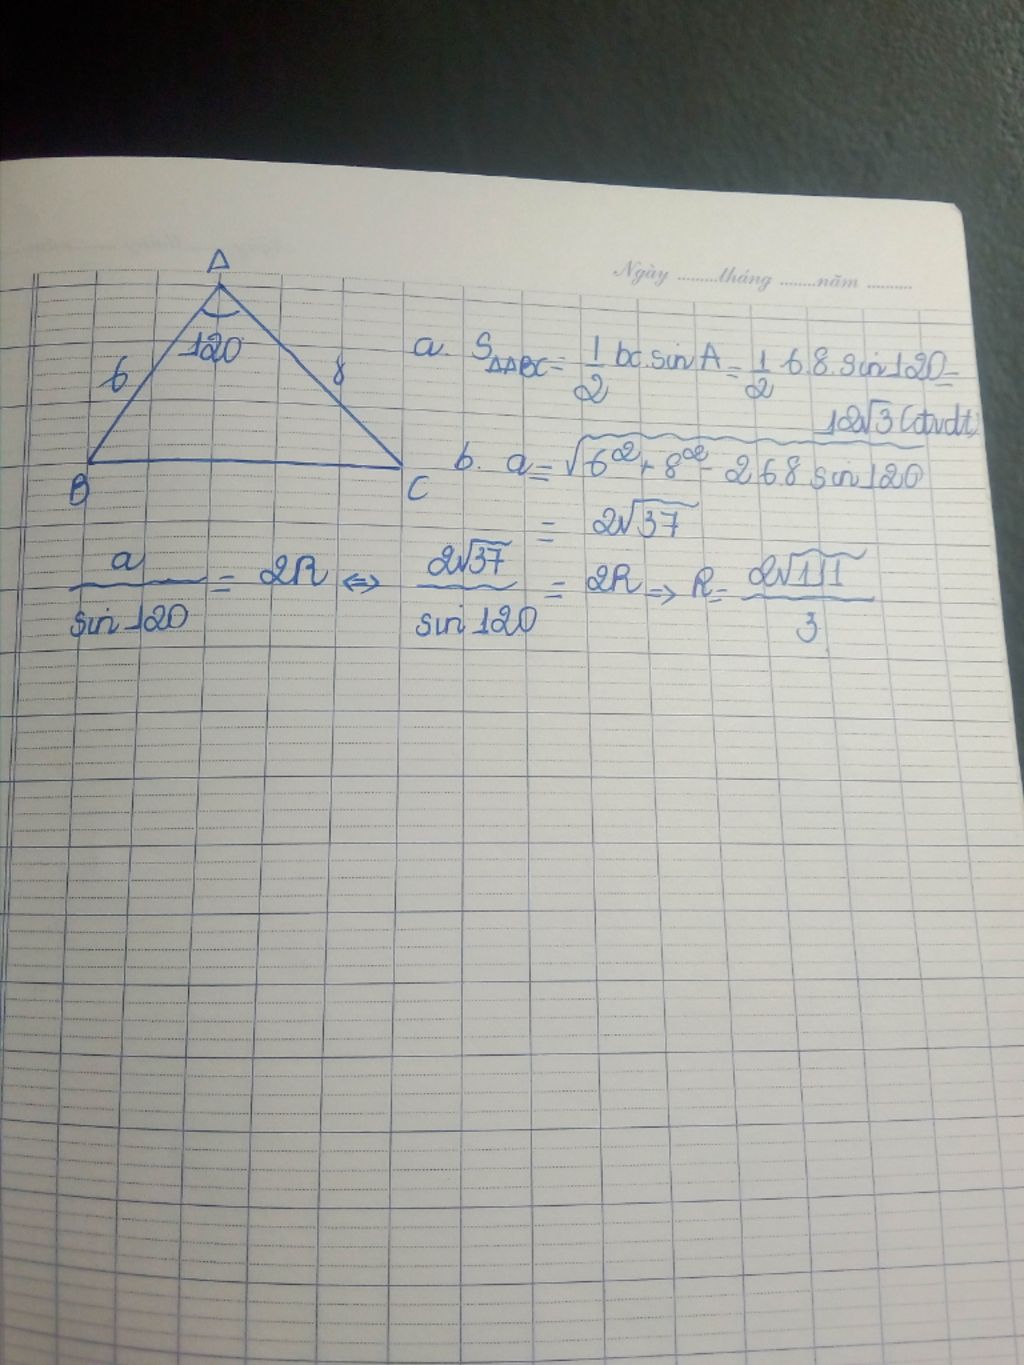 Ngày ........tháng ........năm ..........
A
120
6
8
B
C
a. S△ABC = 1/2 bc.sin A = 1/2 6.8.sin 120 =
12√3 (đvdt)
b. a = √(6² + 8² - 2.6.8 sin 120)
= 2√37
a/sin 120 = 2R ⇔ 2√37/sin 120 = 2R ⇒ R = 2√111/3